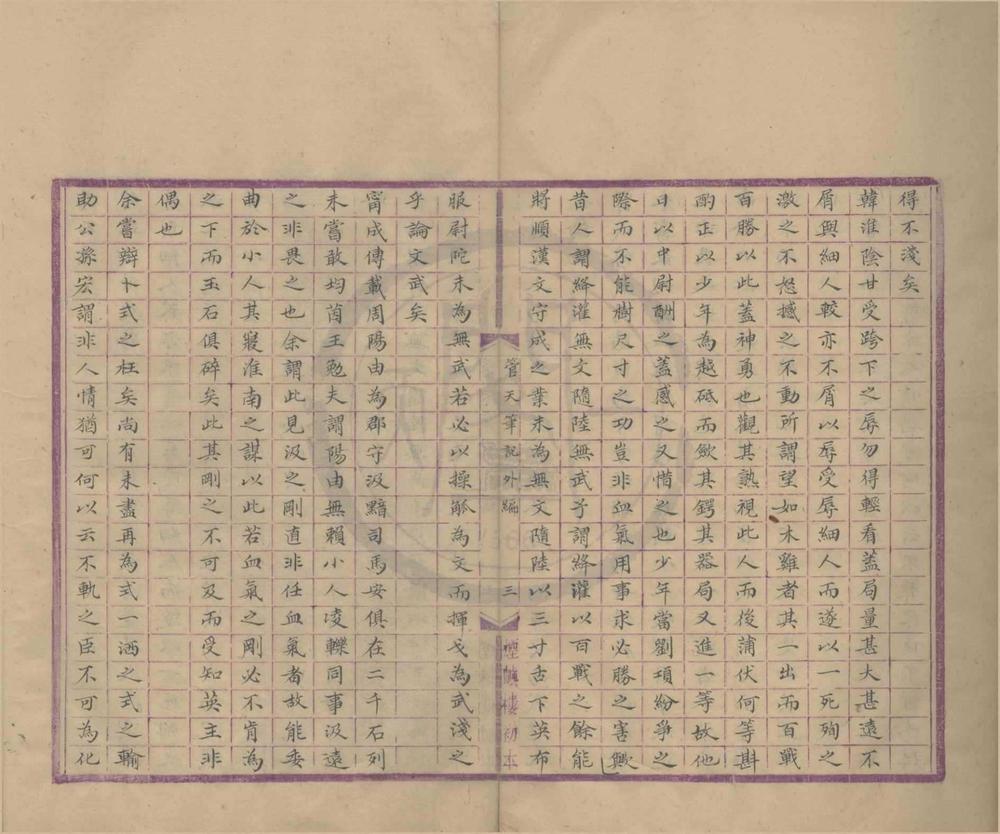 得不淺矣
韓淮陰甘受跨下之辱勿得輕看蓋局量甚大甚遠不
屑與細人較亦不屑以辱受辱細人而遂以一死殉之
激之不怒撼之不動所謂望如木雞者其一出而百戰
百勝以此蓋神勇也觀其熟視此人而後蒲伏何等斟
酌正以少年為越砥而斂其鍔其器局又進一等故他
日以中尉酬之蓋感之又惜之也少年當劉項紛爭之
際而不能樹尺寸之功豈非血氣用事求必勝之害歟
昔人謂絳灌無文隨陸無武予謂絳灌以百戰之餘能
將順漢文守成之業未為無文隨陸以三寸舌下英布
管天筆記外編 三 煙嶼樓初本
服尉陀未為無武若必以操觚為文而揮戈為武淺之
乎論文武矣
甯成傳載周陽由為郡守汲黯司馬安俱在二千石列
未嘗敢均茵王勉夫謂陽由無賴小人凌轢同事汲遠
之非畏之也余謂此見汲之剛直非任血氣者故能委
曲於小人其寢淮南之謀以此若血氣之剛必不肯為
之下而玉石俱碎矣此其剛之不可及而受知英主非
偶也
余嘗辯卜式之枉矣尚有未盡再為式一洒之式之輸
助公孫宏謂非人情猶可何以云不軌之臣不可為化